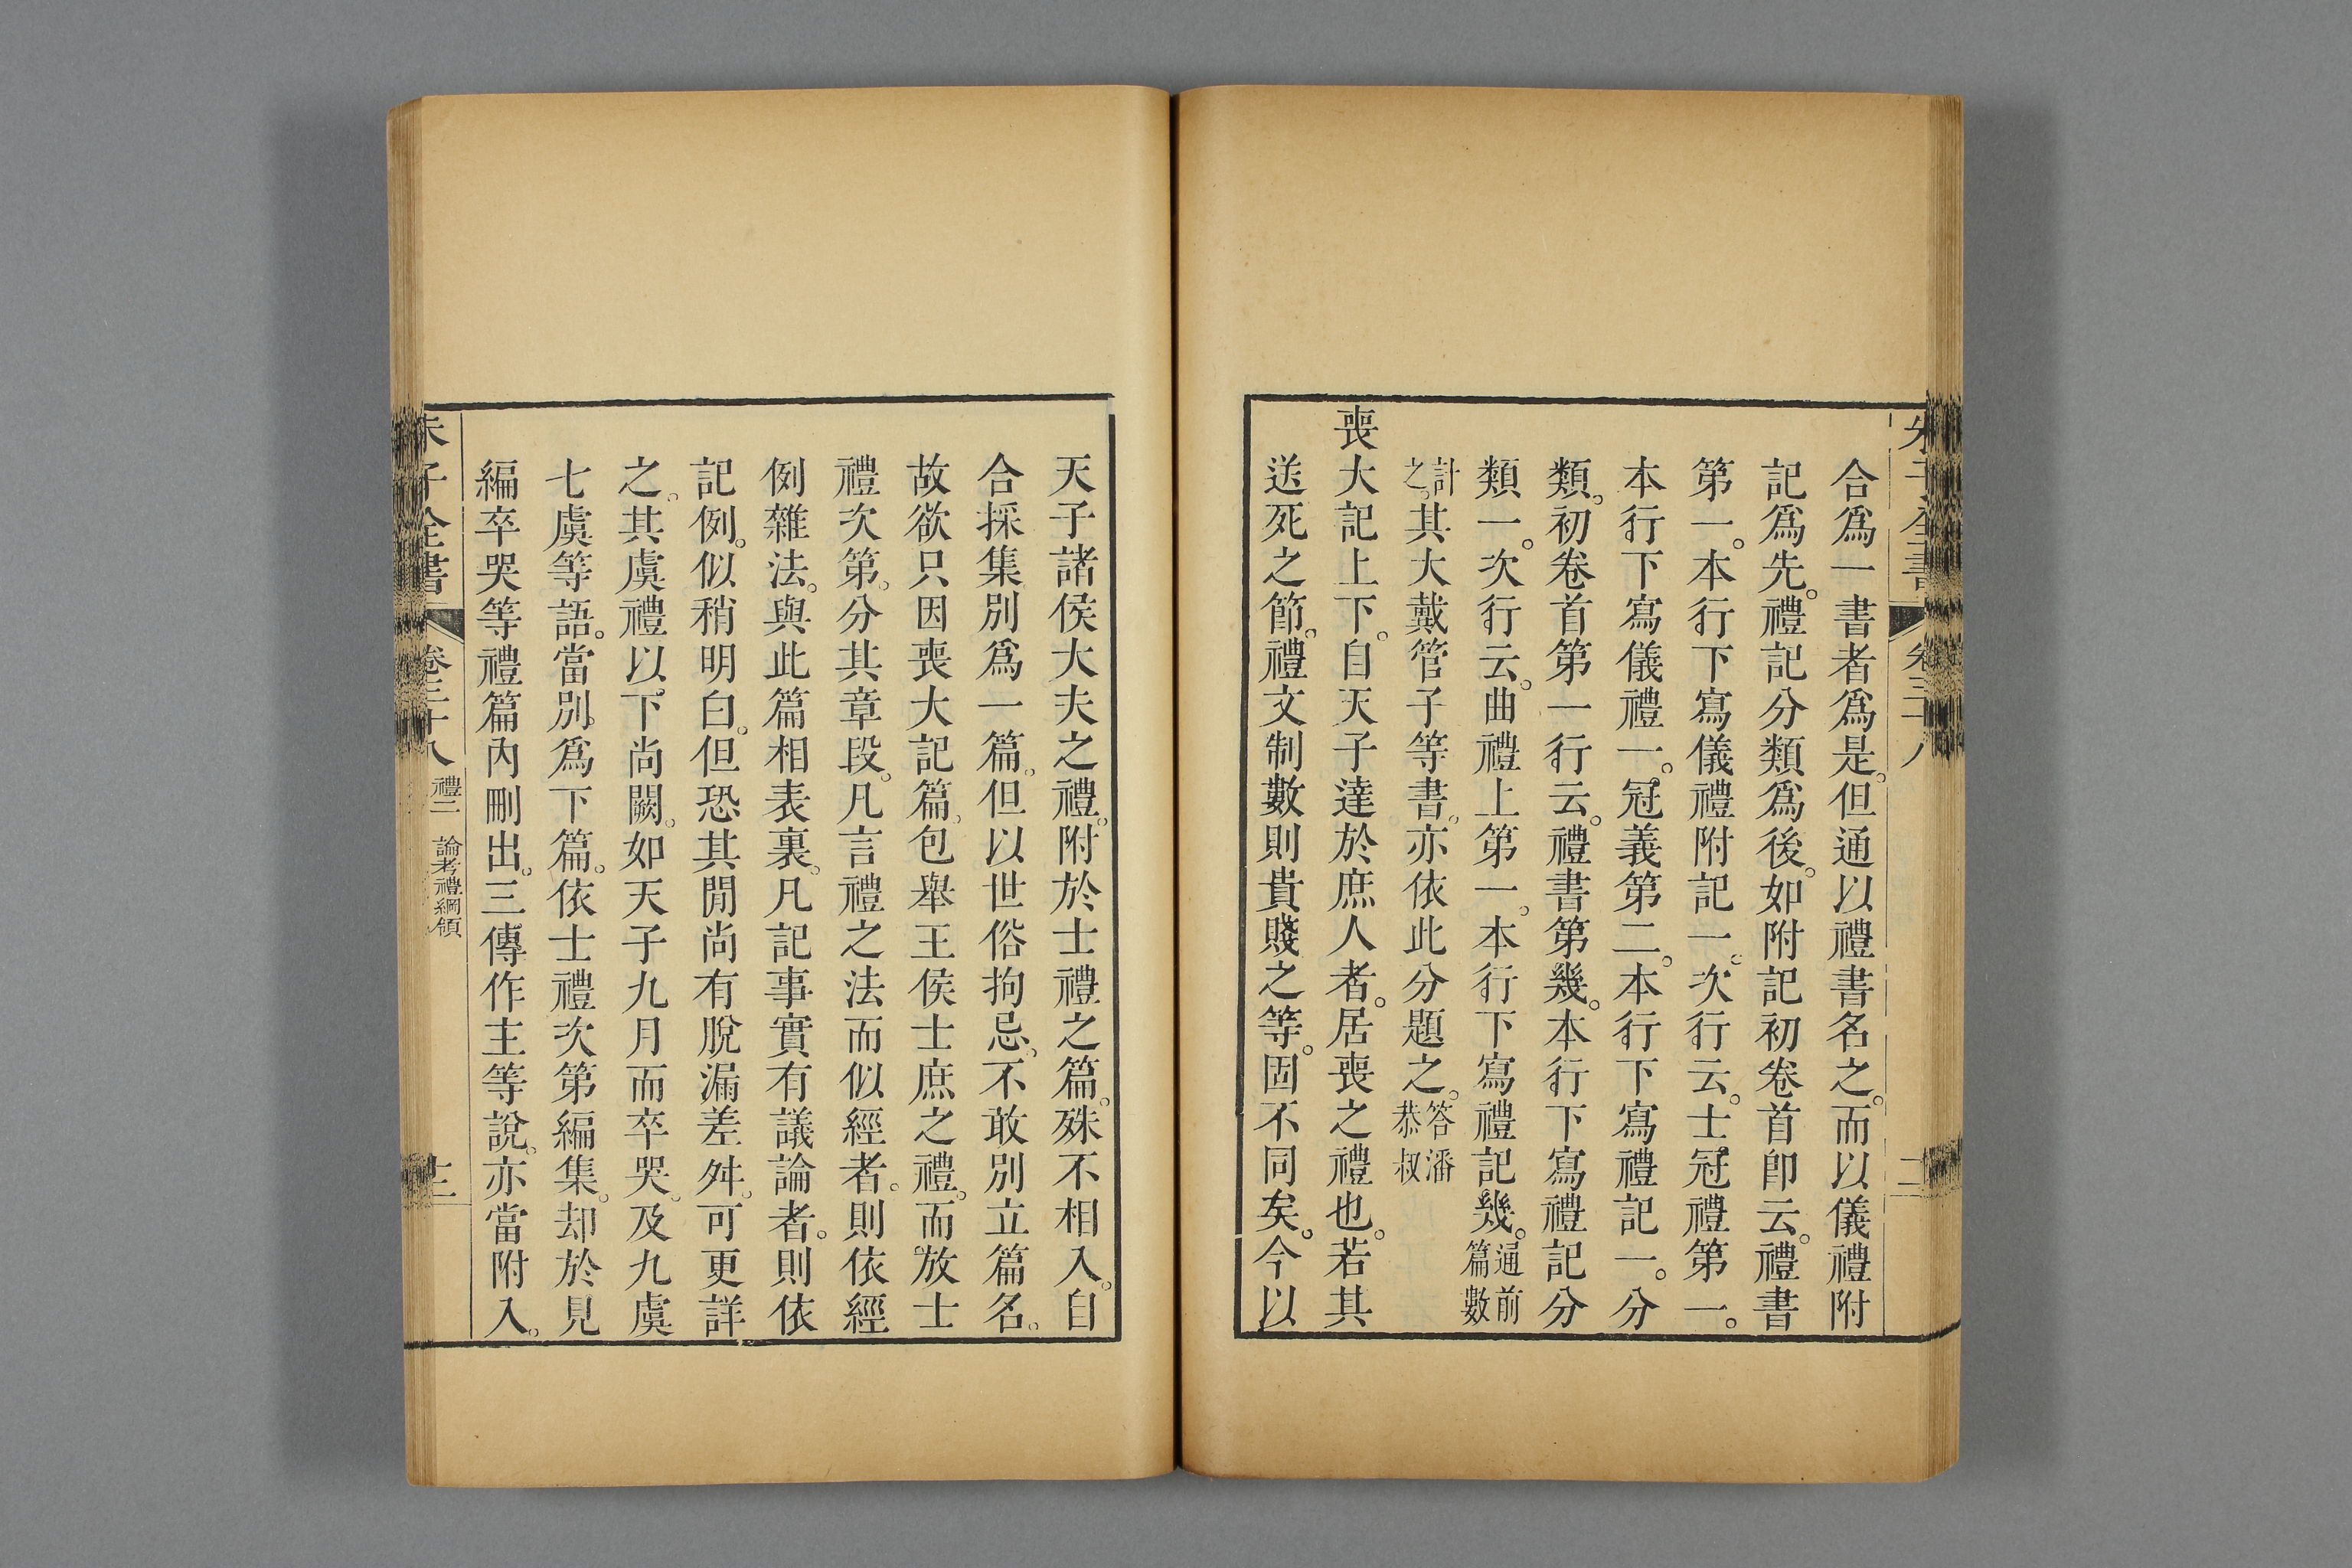 合爲一書者爲是。但通以禮書名之。而以儀禮附
記爲先。禮記分類爲後。如附記初卷首卽云。禮書
第一。本行下寫儀禮附記一。次行云。士冠禮第一。
本行下寫儀禮一。冠義第二。本行下寫禮記一。分
類。初卷首第一行云。禮書第幾。本行下寫禮記分
類一。次行云。曲禮上第一。本行下寫禮記幾。通前篇數
計之。其大戴管子等書。亦依此分題之。答潘恭叔
喪大記上下。自天子達於庶人者。居喪之禮也。若其
送死之節。禮文制數則貴賤之等。固不同矣。今以
天子諸侯大夫之禮。附於士禮之篇。殊不相入。自
合採集別爲一篇。但以世俗拘忌。不敢別立篇名。
故欲只因喪大記篇。包舉王侯士庶之禮。而放士
禮次第。分其章段。凡言禮之法而似經者。則依經
例雜法。與此篇相表裏。凡記事實有議論者。則依
記例。似稍明白。但恐其閒尚有脫漏差舛。可更詳
之。其虞禮以下。尚闕。如天子九月而卒哭。及九虞
七虞等語。當別爲下篇。依士禮次第編集。却於見
編卒哭等禮篇內刪出。三傳作主等說。亦當附入。
朱子全書 卷三十八 禮二 論考禮綱領